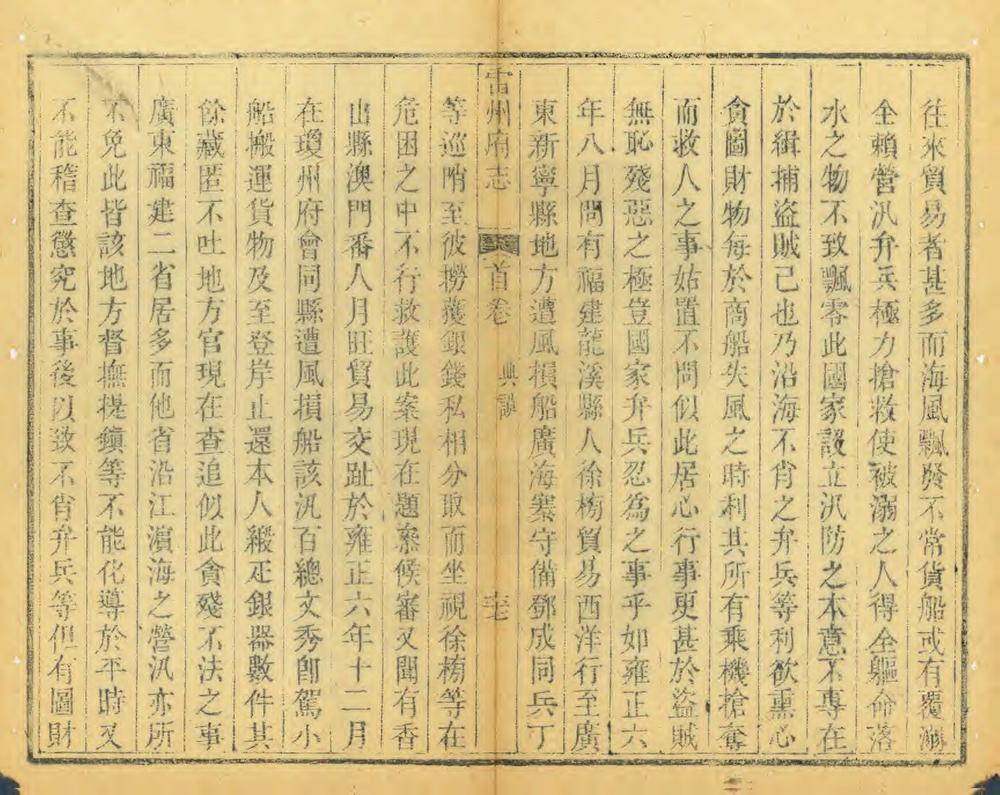 往來貿易者甚多而海風飄發不常貨船或有覆溺
全賴營汛弁兵極力搶救使被溺之人得全軀命落
水之物不致飄零此國家設立汛防之本意不專在
於緝捕盜賊已也乃沿海不肖之弁兵等利欲熏心
貪圖財物每於商船失風之時利其所有乘機搶奪
而救人之事姑置不問似此居心行事更甚於盜賊
無恥殘惡之極豈國家弁兵忍為之事乎如雍正六
年八月間有福建龍溪縣人徐榜貿易西洋行至廣
東新寧縣地方遭風損船廣海寨守備鄧成同兵丁
雷州府志
首卷
典謨
等巡哨至彼撈獲銀錢私相分取而坐視徐榜等在
危困之中不行救護此案現在題叅候審又聞有香
山縣澳門番人月旺貿易交趾於雍正六年十二月
在瓊州府會同縣遭風損船該汛百總文秀卽駕小
船搬運貨物及至登岸止還本人緞疋銀器數件其
餘藏匿不吐地方官現在查追似此貪殘不法之事
廣東福建二省居多而他省沿江濵海之營汛亦所
不免此皆該地方督撫提鎮等不能化導於平時又
不能稽查懲究於事後以致不肖弁兵等但有圖財